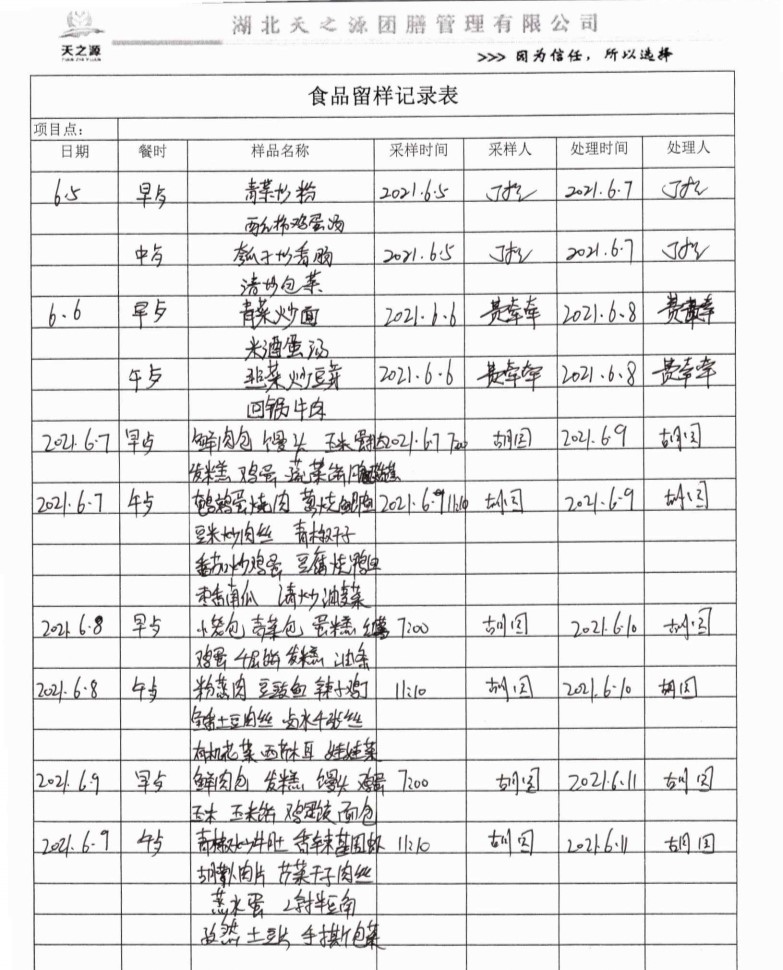 湖北天之源团膳管理有限公司
天之源
TIAN ZHI YUAN
>>> 因为信任，所以选择
食品留样记录表
项目点：
日期 餐时 样品名称 采样时间 采样人 处理时间 处理人
6.5 早点 青菜炒粉 2021.6.5 2021.6.7
西红柿鸡蛋汤
中点 瓠子炒香肠 2021.6.5 2021.6.7
清炒包菜
6.6 早点 青菜炒面 2021.6.6 黄牵牵 2021.6.8 黄牵牵
米酒蛋汤
午点 韭菜炒豆芽 2021.6.6 黄牵牵 2021.6.8 黄牵牵
回锅牛肉
2021.6.7 早点 鲜肉包 馒头 玉米 2021.6.7 7:00 胡囡 2021.6.9 胡囡
发糕 鸡蛋 蔬菜饼
2021.6.7 午点 鹌鹑蛋烧肉 2021.6.9 11:10 胡囡 2021.6.9 胡囡
豆米炒肉丝 青椒干子
番茄炒鸡蛋 豆腐烧鸭血
枣香南瓜 清炒油麦菜
2021.6.8 早点 小笼包 青菜包 蛋糕 7:00 胡囡 2021.6.10 胡囡
鸡蛋 千层饼 发糕 油条
2021.6.8 午点 粉蒸肉 豆豉鱼 辣子鸡丁 11:10 胡囡 2021.6.10 胡囡
土豆肉丝 卤水千张丝
有机花菜 西芹木耳 娃娃菜
2021.6.9 早点 鲜肉包 发糕 馒头 鸡蛋 7:00 胡囡 2021.6.11 胡囡
玉米 玉米饼 鸡蛋饺 面包
2021.6.9 午点 青椒炒牛肚 香辣基围虾 11:10 胡囡 2021.6.11 胡囡
肉片 芹菜干子肉丝
蒸水蛋 豆角
孜然土豆片 手撕包菜